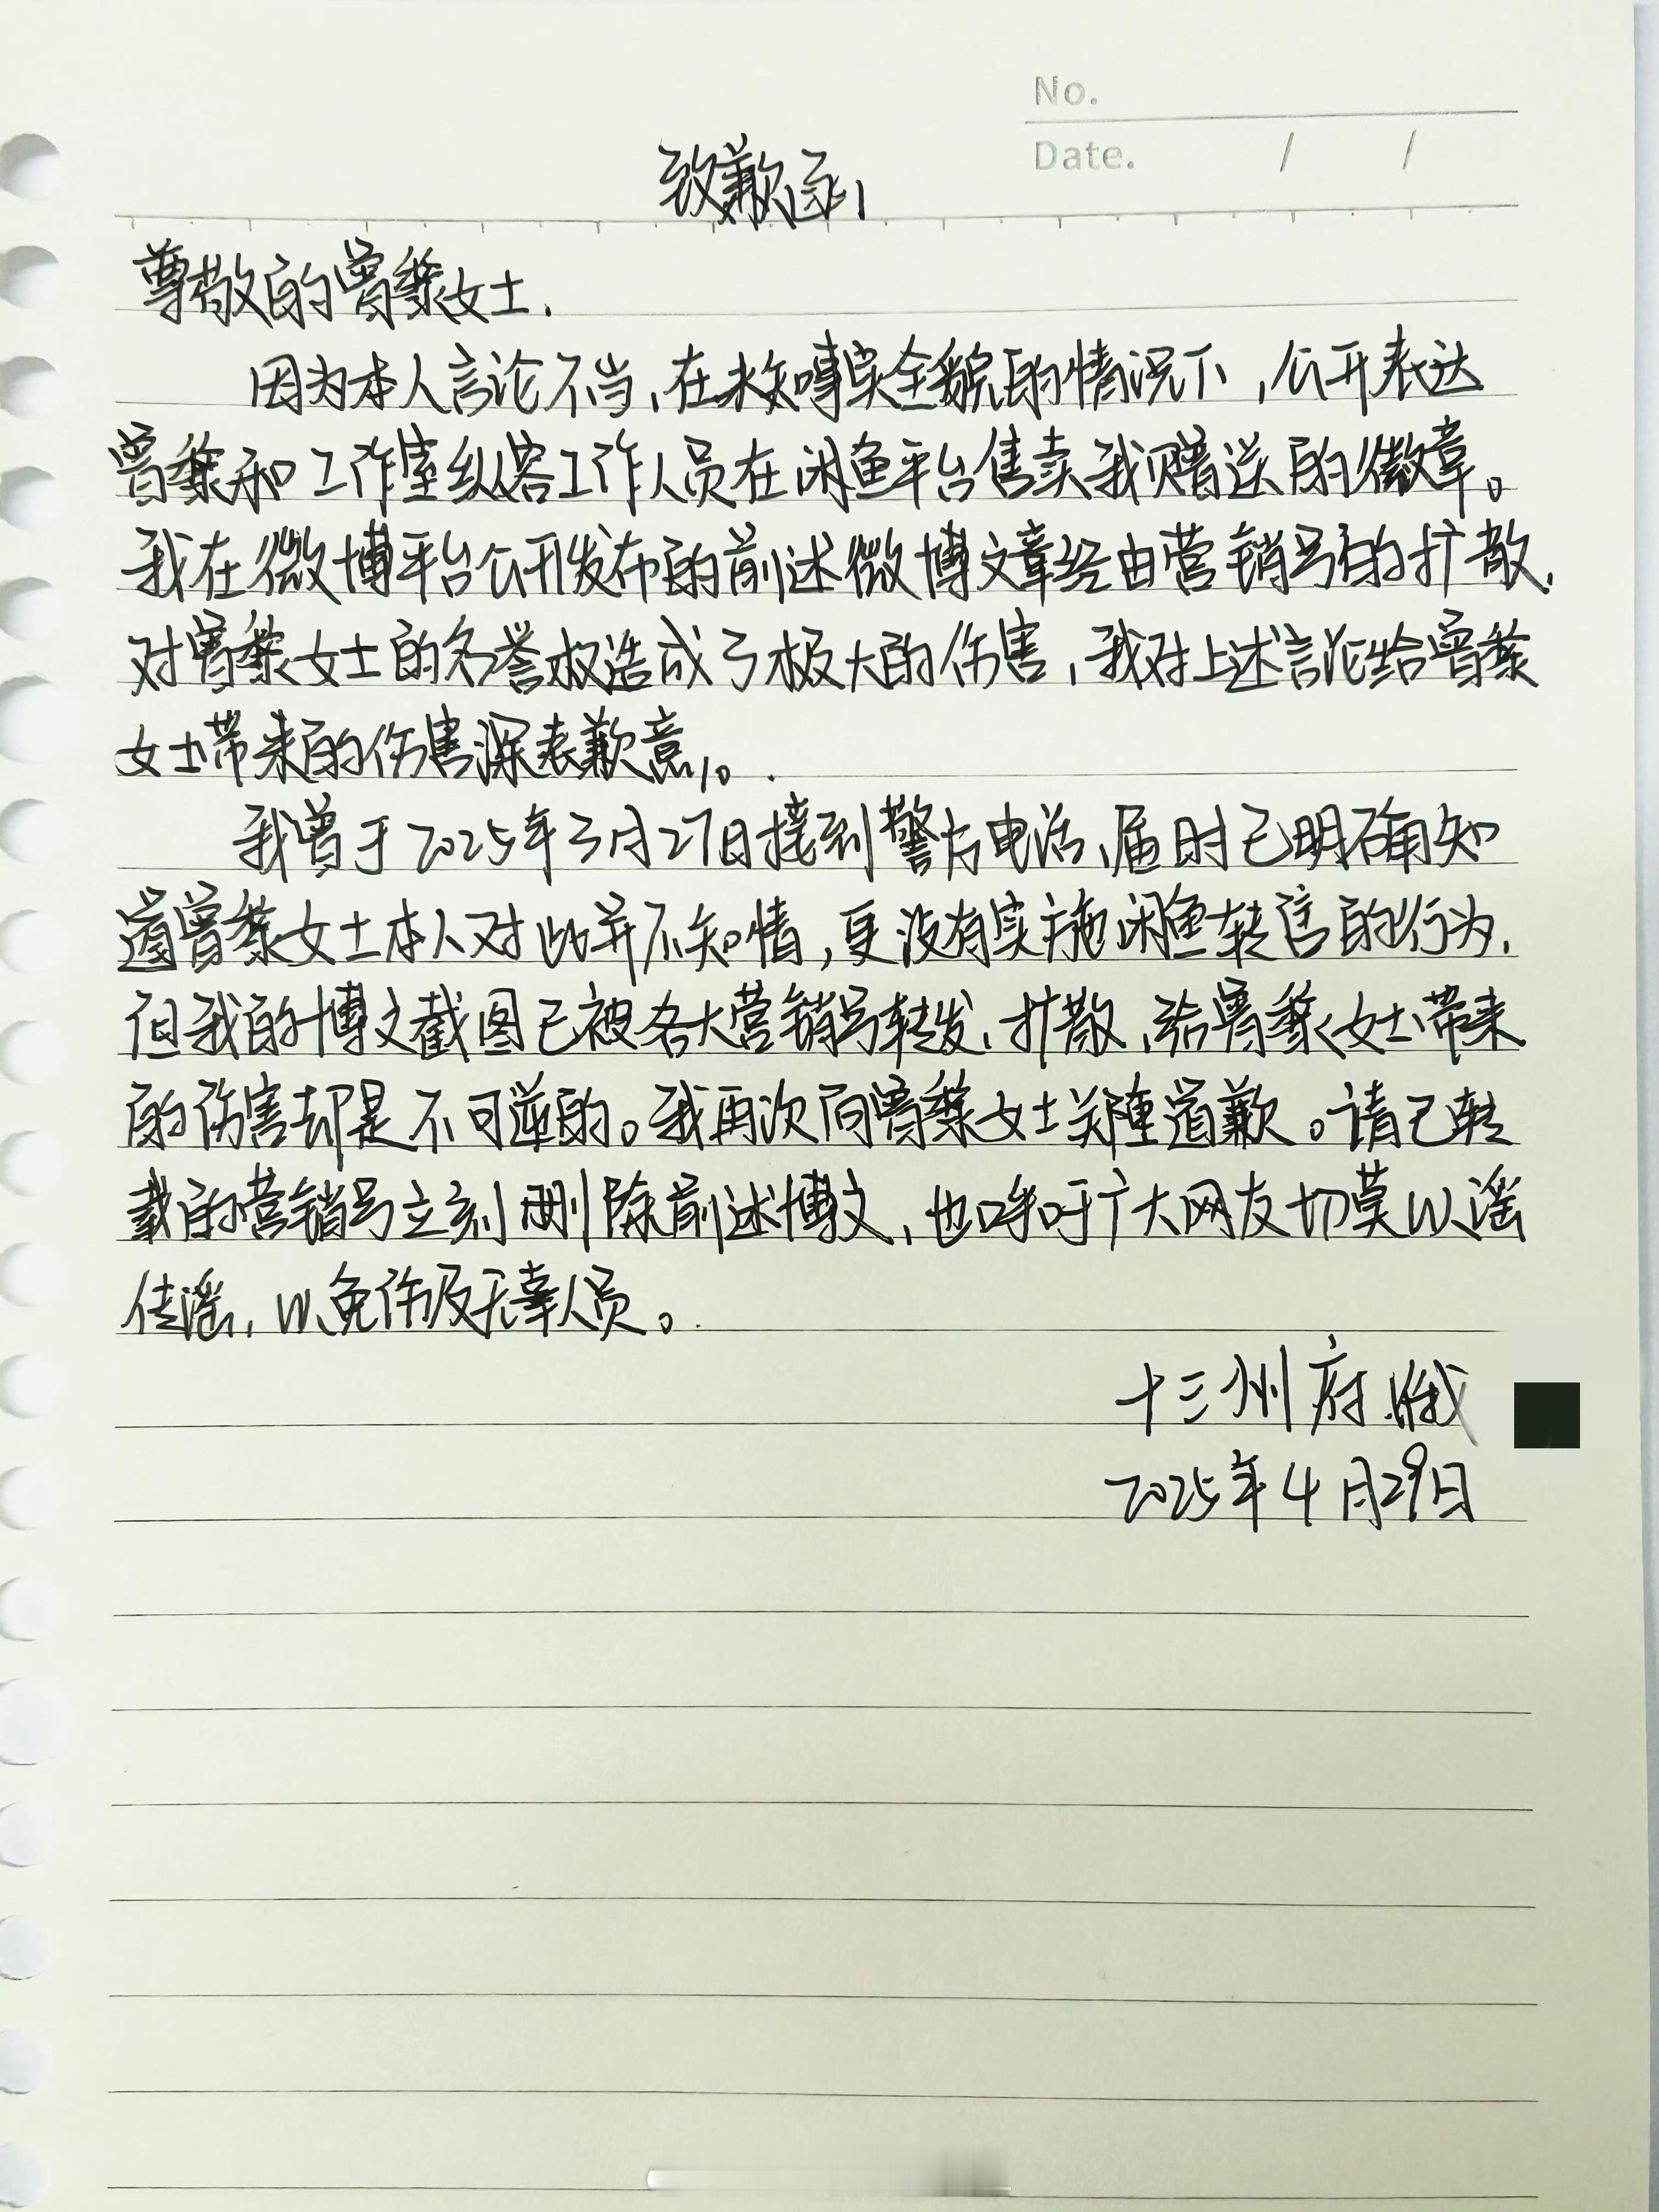 No.
Date. / /
致歉函
尊敬的曾黎女士,
因为本人言论不当,在未知事实全貌的情况下,公开表达
曾黎和工作室纵容工作人员在闲鱼平台售卖我赠送的徽章。
我在微博平台公开发布的前述微博文章经由营销号的扩散,
对曾黎女士的名誉权造成了极大的伤害,我对上述言论给曾黎
女士带来的伤害深表歉意。
我曾于2025年3月27日接到警方电话,届时已明确知
道曾黎女士本人对此并不知情,更没有实施闲鱼转售的行为,
但我的博文截图已被各大营销号转发、扩散,给曾黎女士带来
的伤害却是不可逆的。我再次向曾黎女士郑重道歉。请已转
载的营销号立刻删除前述博文,也呼吁广大网友切莫以谣
传谣,以免伤及无辜人员。
十三州府.俄
2025年4月29日